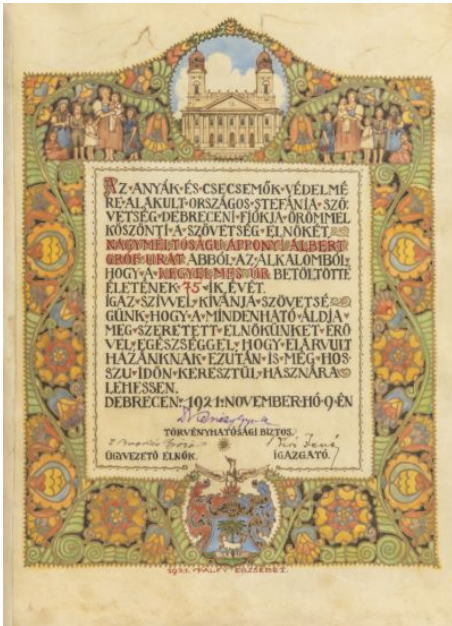 AZ·ANYÁK·ÉS·CSECSEMŐK·VÉDELMÉ
RE·ALAKULT·ORSZÁGOS·STEFÁNIA·SZÖ
VETSÉG·DEBRECENI·FIÓKJA·ÖRÖMMEL
KÖSZÖNTI·A·SZÖVETSÉG·ELNÖKÉT,
NAGYMÉLTÓSÁGU·APPONYI·ALBERT
GRÓF·URAT·ABBÓL·AZ·ALKALOMBÓL,
HOGY·A·KEGYELMES·ÚR·BETÖLTÖTTE
ÉLETÉNEK·75·IK·ÉVÉT.
IGAZ·SZÍVVEL·KÍVÁNJA·SZÖVETSÉ
GÜNK·HOGY·A·MINDENHATÓ·ÁLDJA
MEG·SZERETETT·ELNÖKÜNKET·ERŐ
VEL·EGÉSZSÉGGEL·HOGY·ELÁRVULT
HAZÁNKNAK·EZUTÁN·IS·MÉG·HOS
SZU·IDŐN·KERESZTÜL·HASZNÁRA
LEHESSEN.
DEBRECEN, 1921·NOVEMBER·HÓ·9·ÉN
TÖRVÉNYHATÓSÁGI BIZTOS.
ÜGYVEZETŐ ELNÖK. IGAZGATÓ.
1921. ERZSÉBET.